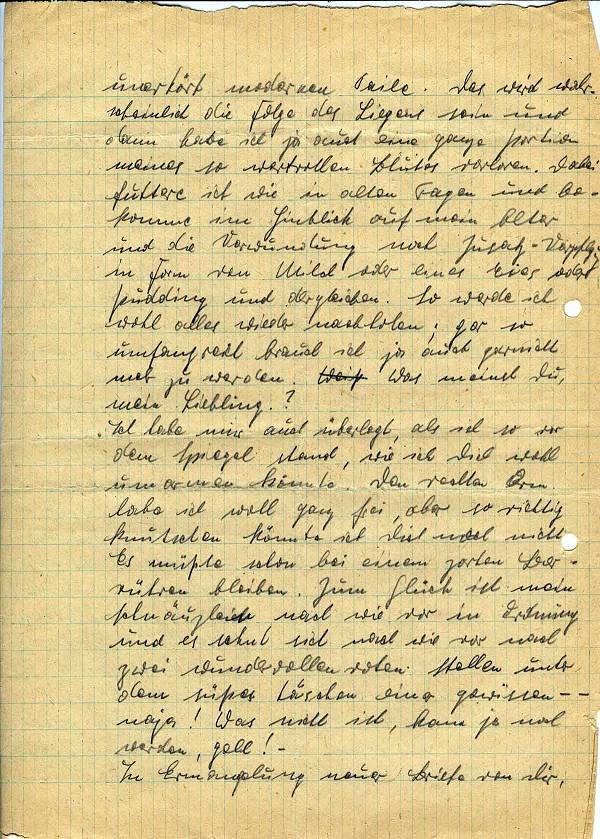 unerhört modernen Taille. Das wird wahr-
scheinlich die Folge des Liegens sein und
dann habe ich ja auch eine ganze Portion
meines so wertvollen Blutes verloren. Dabei
futtere ich wie in alten Tagen und be-
komme im Hinblick auf mein Alter
und die Verwundung noch Zusatz-Verpfleg.
in Form von Milch oder eines Eies oder
Pudding und dergleichen. So werde ich
wohl alles wieder nachholen; gar so
umfangreich brauch ich ja auch garnicht
mehr zu werden. Was meinst Du,
mein Liebling.?
Ich habe mir auch überlegt, als ich so vor
dem Spiegel stand, wie ich Dich wohl
umarmen könnte. Den rechten Arm
habe ich wohl ganz frei, aber so richtig
knutschen könnte ich Dich noch nicht.
Es müßte schon bei einem zarten Be-
rühren bleiben. Zum Glück ist mein
Schnäuzlein nach wie vor in Ordnung
und es sehnt sich nach wie vor nach
zwei wundervollen roten Stellen unter
dem süßen Näschen einer gewissen --
naja! Was nicht ist, kann ja noch
werden, gell! -
In Ermanglung neuer Briefe von Dir,